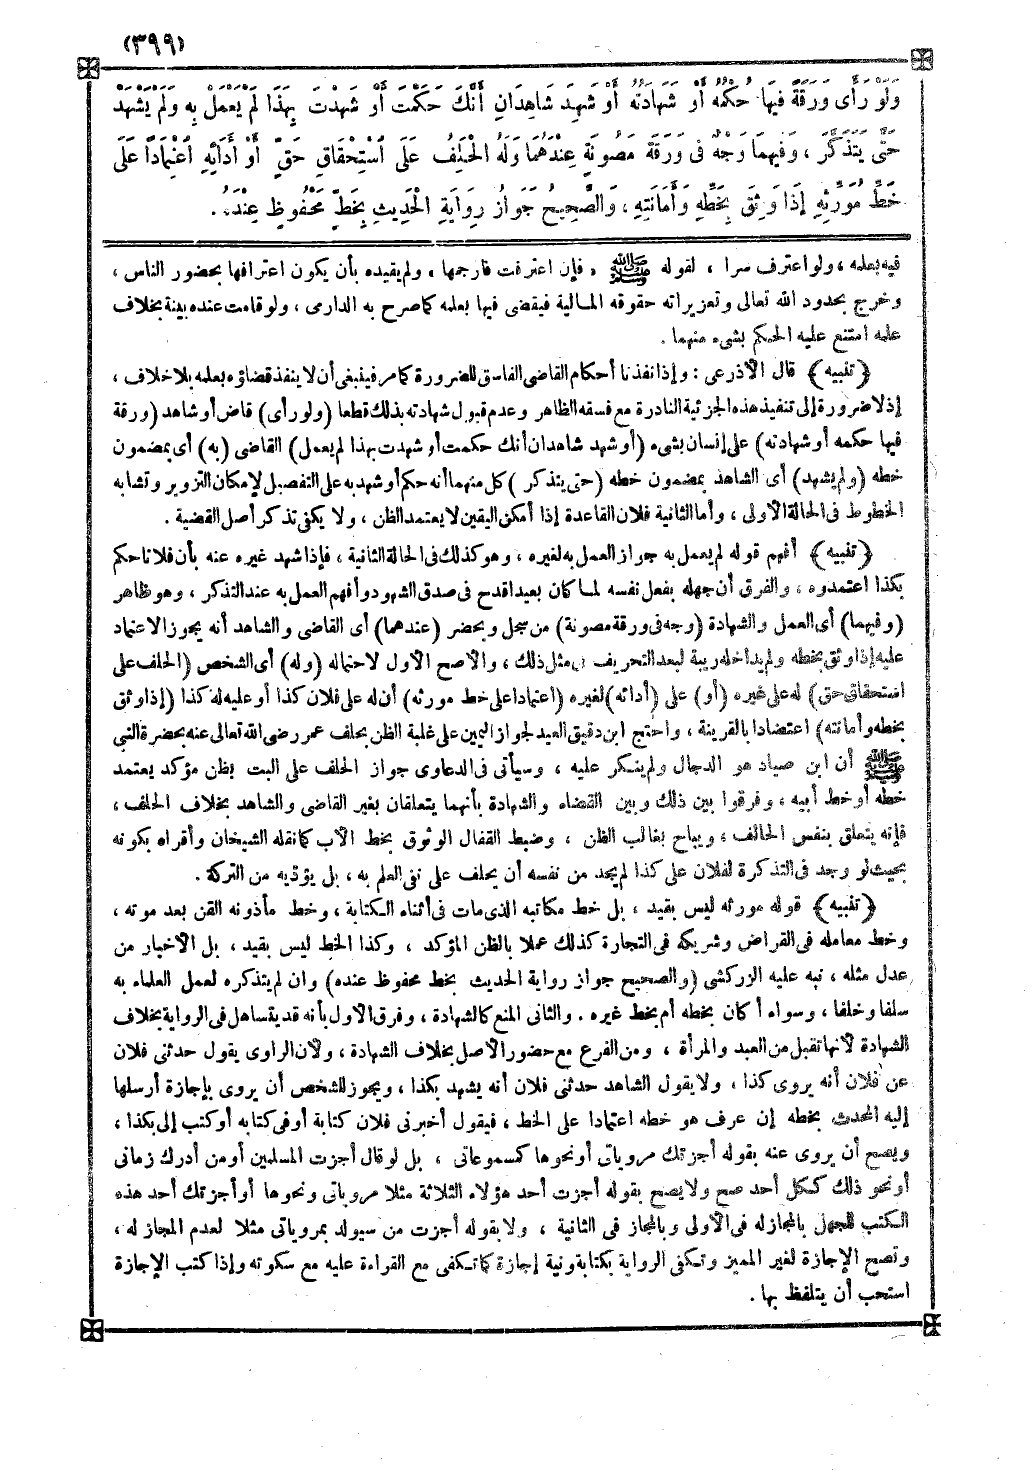 (٣٩٩)
وَلَوْ رَأَى وَرَقَةً فِيهَا حُكْمُهُ أَوْ شَهَادَتُهُ أَوْ شَهِدَ شَاهِدَانِ أَنَّكَ حَكَمْتَ أَوْ شَهِدْتَ بِهَذَا لَمْ يَعْمَلْ بِهِ وَلَمْ يَشْهَدْ
حَتَّى يَتَذَكَّرَ ، وَفِيهِمَا وَجْهٌ فِى وَرَقَةٍ مَصُونَةٍ عِنْدَهُمَا وَلَهُ الْحَلِفُ عَلَى اسْتِحْقَاقِ حَقٍّ أَوْ أَدَائِهِ اعْتِمَادًا عَلَى
خَطِّ مُوَرِّثِهِ إِذَا وَثِقَ بِخَطِّهِ وَأَمَانَتِهِ ، وَالصَّحِيحُ جَوَازُ رِوَايَةِ الْحَدِيثِ بِخَطٍّ مَحْفُوظٍ عِنْدَهُ .
فيه بعلمه ، ولو اعترف سرا ، لقوله ﷺ « فإن اعترفت فارجمها » ولم يقيده بأن يكون اعترافها بحضور الناس ،
وخرج بحدود الله تعالى وتعزيراته حقوقه المالية فيقضى فيها بعلمه كما صرح به الدارمى ، ولو قامت عنده بينة بخلاف
علمه امتنع عليه الحكم بشىء منهما .
﴿تنبيه﴾ قال الأذرعى : وإذا نفذنا أحكام القاضى الفاسق للضرورة كما مر فينبغى أن لا ينفذ قضاؤه بعلمه بلا خلاف ،
إذ لا ضرورة إلى تنفيذ هذه الجزئية النادرة مع فسقه الظاهر وعدم قبول شهادته بذلك قطعا (ولو رأى) قاض أو شاهد (ورقة
فيها حكمه أو شهادته) على إنسان بشىء (أو شهد شاهدان أنك حكمت أو شهدت بهذا لم يعمل) القاضى (به) أى بمضمون
خطه (ولم يشهد) أى الشاهد بمضمون خطه (حتى يتذكر) كل منهما أنه حكم أو شهد به على التفصيل لإمكان التزوير وتشابه
الخطوط فى الحالة الأولى ، وأما الثانية فلأن القاعدة إذا أمكن اليقين لا يعتمد الظن ، ولا يكفى تذكر أصل القضية .
﴿تنبيه﴾ أفهم قوله لم يعمل به جواز العمل به لغيره ، وهو كذلك فى الحالة الثانية ، فإذا شهد غيره عنه بأن فلانا حكم
بكذا اعتمدوه ، والفرق أن جهله بفعل نفسه لما كان بعيدا قدح فى صدق الشهود وأفهم العمل به عند التذكر ، وهو ظاهر
(وفيهما) أى العمل والشهادة (وجه فى ورقة مصونة) من سجل ومحضر (عندهما) أى القاضى والشاهد أنه يجوز الاعتماد
عليه إذا وثق بخطه ولم يداخله ريبة لبعد التحريف فى مثل ذلك ، والأصح الأول لاحتماله (وله) أى الشخص (الحلف على
استحقاق حق) له على غيره (أو) على (أدائه) لغيره (اعتمادا على خط مورثه) أن له على فلان كذا أو عليه له كذا (إذا وثق
بخطه وأمانته) اعتضادا بالقرينة ، واحتج ابن دقيق العيد لجواز اليمين على غلبة الظن بحلف عمر رضى الله تعالى عنه بحضرة النبى
ﷺ أن ابن صياد هو الدجال ولم ينكر عليه ، وسيأتى فى الدعاوى جواز الحلف على البت بظن مؤكد يعتمد
خطه أو خط أبيه ، وفرقوا بين ذلك وبين القضاء والشهادة بأنهما يتعلقان بغير القاضى والشاهد بخلاف الحلف ،
فإنه يتعلق بنفس الحالف ، ويباح بغالب الظن ، وضبط القفال الوثوق بخط الأب كما نقله الشيخان وأقراه بكونه
بحيث لو وجد فى التذكرة لفلان على كذا لم يجد من نفسه أن يحلف على نفى العلم به ، بل يؤديه من التركة .
﴿تنبيه﴾ قوله مورثه ليس بقيد ، بل خط مكاتبه الذى مات فى أثناء الكتابة ، وخط مأذونه القن بعد موته ،
وخط معامله فى القراض وشريكه فى التجارة كذلك عملا بالظن المؤكد ، وكذا الخط ليس بقيد ، بل الأخبار من
عدل مثله ، نبه عليه الزركشى (والصحيح جواز رواية الحديث بخط محفوظ عنده) وان لم يتذكره لعمل العلماء به
سلفا وخلفا ، وسواء أكان بخطه أم بخط غيره . والثانى المنع كالشهادة ، وفرق الأول بأنه قد يتساهل فى الرواية بخلاف
الشهادة لأنها تقبل من العبد والمرأة ، ومن الفرع مع حضور الأصل بخلاف الشهادة ، ولأن الراوى يقول حدثنى فلان
عن فلان أنه يروى كذا ، ولا يقول الشاهد حدثنى فلان أنه يشهد بكذا ، ويجوز للشخص أن يروى بإجازة أرسلها
إليه المحدث بخطه إن عرف هو خطه اعتمادا على الخط ، فيقول أخبرنى فلان كتابة أو فى كتابه أو كتب إلى بكذا ،
ويصح أن يروى عنه بقوله أجزتك مروياتى أو نحوها كمسموعاتى ، بل لو قال أجزت المسلمين أو من أدرك زمانى
أو نحو ذلك ككل أحد صح ولا يصح بقوله أجزت أحد هؤلاء الثلاثة مثلا مروياتى ونحوها أو أجزتك أحد هذه
الكتب للجهل بالمجاز له فى الأولى وبالمجاز فى الثانية ، ولا بقوله أجزت من سيولد بمروياتى مثلا لعدم المجاز له ،
وتصح الإجازة لغير المميز وتكفى الرواية بكتابة ونية إجازة كما تكفى مع القراءة عليه مع سكوته وإذا كتب الإجازة
استحب أن يتلفظ بها .